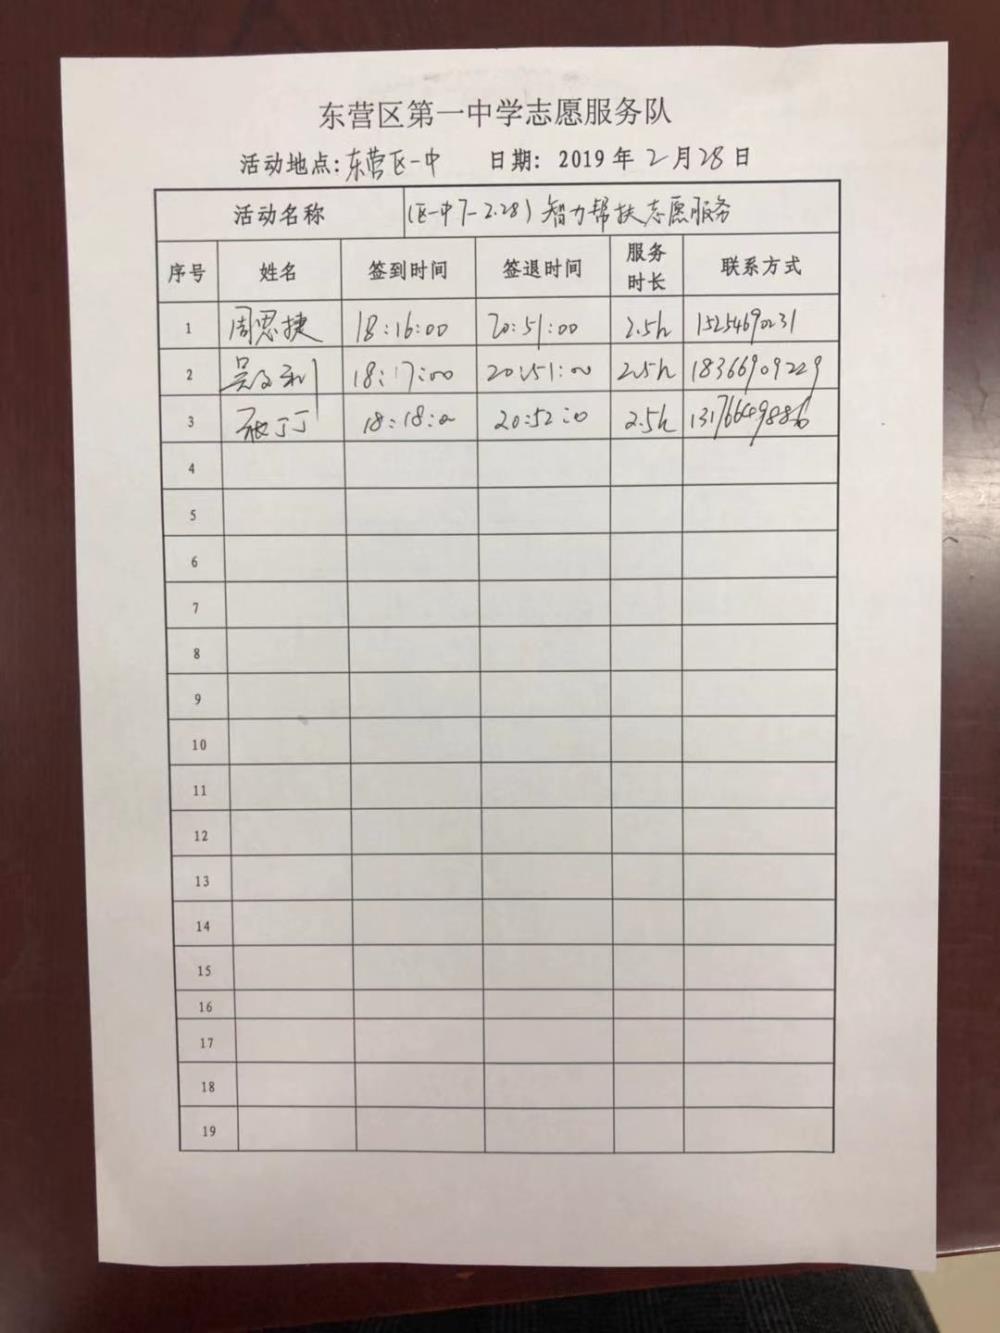 东营区第一中学志愿服务队
活动地点:东营区一中 日期: 2019年2月28日
活动名称 (区一中7-2.28)智力帮扶志愿服务
序号 姓名 签到时间 签退时间 服务时长 联系方式
1 周思捷 18:16:00 20:51:00 2.5h 15254690231
2 吴 利 18:17:00 20:51:00 2.5h 18366909229
3 丁丁 18:18:00 20:52:00 2.5h 13176649886
4
5
6
7
8
9
10
11
12
13
14
15
16
17
18
19